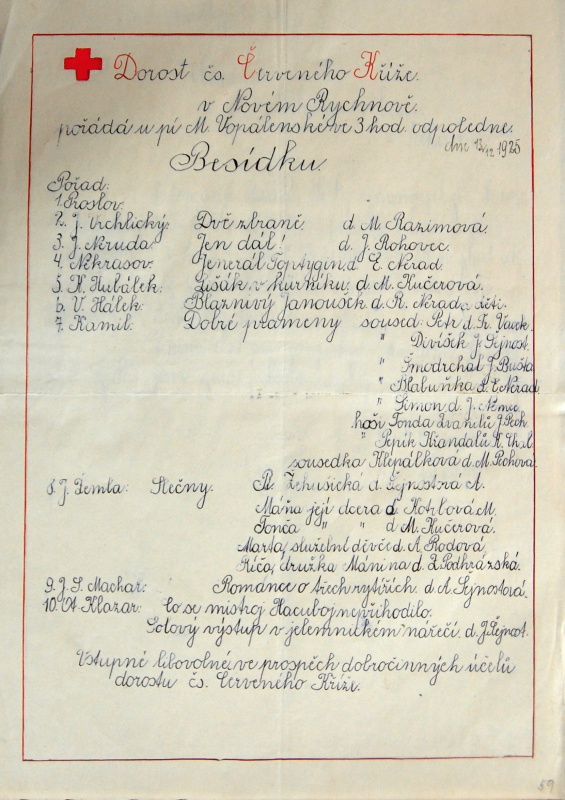 Dorost čs. Červeného Kříže.
v Novém Rychnově.
pořádá u pí M. Vopálenské ve 3 hod. odpoledne.
dne 13/12 1925
Besídku.
Pořad:
1. Proslov.
2. J. Vrchlický: Dvě zbraně. d. M. Razimová.
3. J. Neruda: Jen dál! d. J. Rohovec.
4. Někrasov: Jenerál Toptygin. d. E. Nerad.
5. K. Kubálek: Lišák v kurníku. d. M. Kučerová.
6. V. Hálek: Bláznivý Janoušek. d. R. Nerad a děti.
7. Kamil: Dobré prameny soused Petr d. Fr. Vacek.
" Divíšek J. Šejnost.
" Šmodrchal J. Bušta
" Blabuňka d. E. Nerad
" Šimon d. J. Němec
hoši Tonda Zvanilů J. Pech.
" Pepík Křandalů K. Chal.
sousedka Klepálková d. M. Pechová.
8. J. Žemla: Slečny. Žehušická d. Šejnostová A.
Máňa její dcera d. Kotrlová M.
Tonča " " d. M. Kučerová.
Marta, služební děvče d. A. Rodová.
Kiča, družka Mánina d. Z. Podhrázská.
9. J. S. Machar: Romance o třech rytířích. d. A. Šejnostová.
10. Ot. Klazar: Co se mistroj Hacuboj nepřihodilo.
Solový výstup v jelemnickém nářečí. d. J. Šejnost.
Vstupné libovolné, ve prospěch dobročinných účelů
dorostu čs. Červeného Kříže.
59